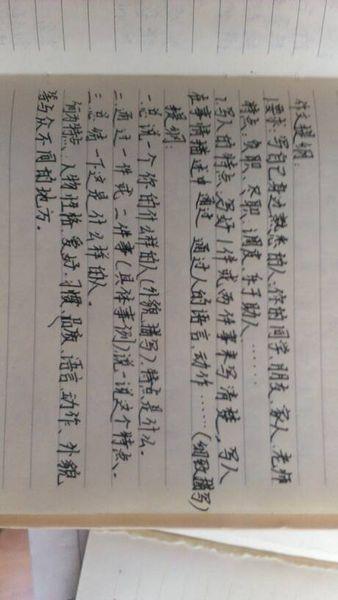 作文提纲:
1.要求:写自己身边熟悉的人、你的同学、朋友、家人、老师
特点、负职、尽职、调皮、乐于助人……
2.写人的特点、还好1件或两件事来写清楚,写人
在事情描述中通过 通过人的语言、动作……(细致描写)
提纲:
一、总说一个你的什么样的人(外貌描写)、特点是什么。
二、通过一件或二件事(具体事例)说一说这个特点。
三、总结一下这是什么样的人。
何为特点:人物性格、爱好、习惯、品质、语言、动作、外貌
等与众不同的地方。